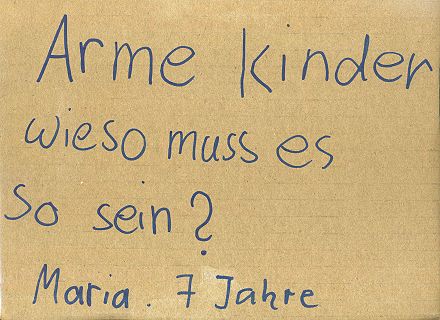 Arme kinder
wieso muss es
so sein?
Maria. 7 Jahre